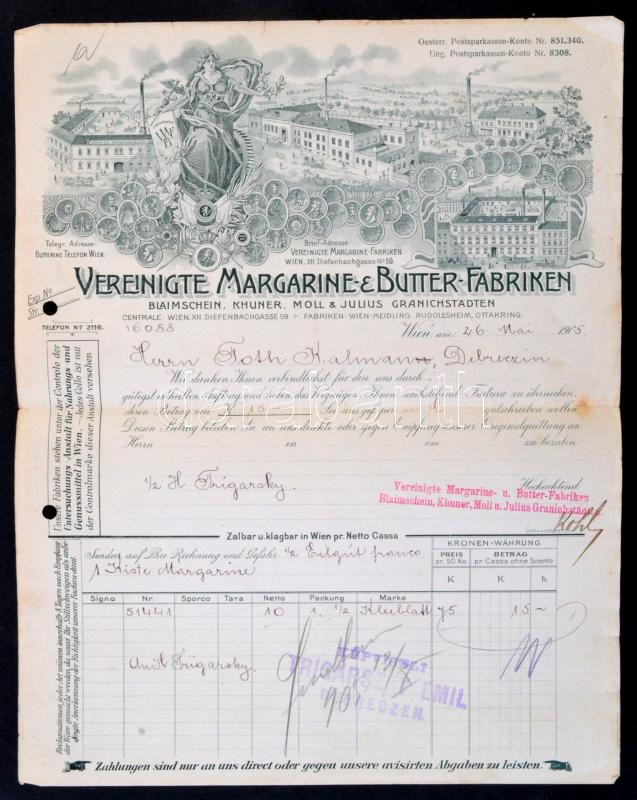 Oesterr. Postsparkassen-Konto Nr. 851.340.
Ung. Postsparkassen-Konto Nr. 8308.
Telegr. Adresse:
BUTTERINE TELEFON WIEN.
Brief-Adresse:
VEREINIGTE MARGARINE-FABRIKEN
WIEN, XII. Diefenbachgasse No 59
VEREINIGTE MARGARINE-& BUTTER-FABRIKEN
BLAIMSCHEIN, KHUNER, MOLL & JULIUS GRANICHSTÄDTEN
CENTRALE: WIEN, XII. DIEFENBACHGASSE 59 + FABRIKEN: WIEN-MEIDLING, RUDOLFSHEIM, OTTAKRING.
Exp. No
Str.
TELEFON No 2116.
16088
Wien, am 26 Mai 1905
Herrn Toth Kalman, Debreczin
Wir danken Ihnen verbindlichst für den uns durch
gütigst ertheilten Auftrag und haben das Vergnügen Ihnen nachstehend Factura zu überreichen,
deren Betrag von K 15 Sie uns gef. per gutschreiben wollen
Diesen Betrag belieben Sie an uns direkte oder gegen Empfang unserer Originalquittung an
Herrn in am zu bezahlen.
Hochachtend
½ H Trigarsky.
Vereinigte Margarine- u. Butter-Fabriken
Blaimschein, Khuner, Moll u. Julius Granichstädten
Unsere Fabriken stehen unter der Controle der
Untersuchungs Anstalt für Nahrungs- und
Genussmittel in Wien. — Jedes Collo ist mit
der Controlmarke dieser Anstalt versehen.
Zalbar u. klagbar in Wien pr. Netto Cassa
KRONEN-WÄHRUNG
Sendet auf Ihre Rechnung und Gefahr ½ Eilgut franco
1 Kiste Margarine
PREIS
pr. 50 Ko.
BETRAG
pr Cassa ohne Sconto
K K h
Signo Nr. Sporco Tara Netto Packung Marke
51441 10 1, ½ Kleeblatt 75 15 –
An H Trigarsky.
TRIGARS EMIL
DEBRECZEN.
905
Reclamationen jeder Art müssen innerhalb 8 Tagen nach Empfang
der Ware gemacht werden, da sonst Ihr Stillschweigen als unbe-
dingte Anerkennung der Richtigkeit unserer Factura dient.
Zahlungen sind nur an uns direct oder gegen unsere avisirten Abgaben zu leisten.